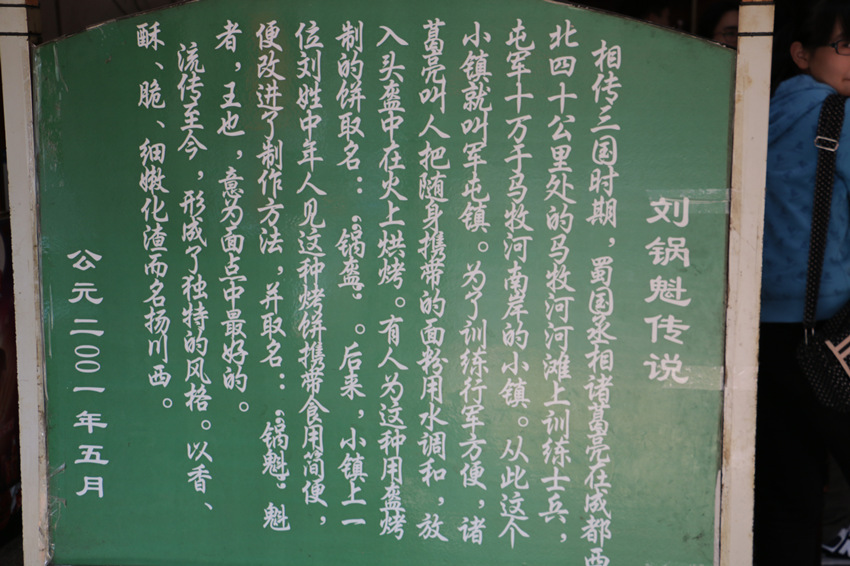 刘锅魁传说
相传三国时期，蜀国丞相诸葛亮在成都西
北四十公里处的马牧河河滩上训练士兵，
屯军十万于马牧河南岸的小镇。从此这个
小镇就叫军屯镇。为了训练行军方便，诸
葛亮叫人把随身携带的面粉用水调和，放
入头盔中在火上烘烤。有人为这种用盔烤
制的饼取名：“锅盔”。后来，小镇上一
位刘姓中年人见这种烤饼携带食用简便，
便改进了制作方法，并取名：“锅魁”。魁
者，王也，意为面点中最好的。
流传至今，形成了独特的风格。以香、
酥、脆、细嫩化渣而名扬川西。
公元二00一年五月